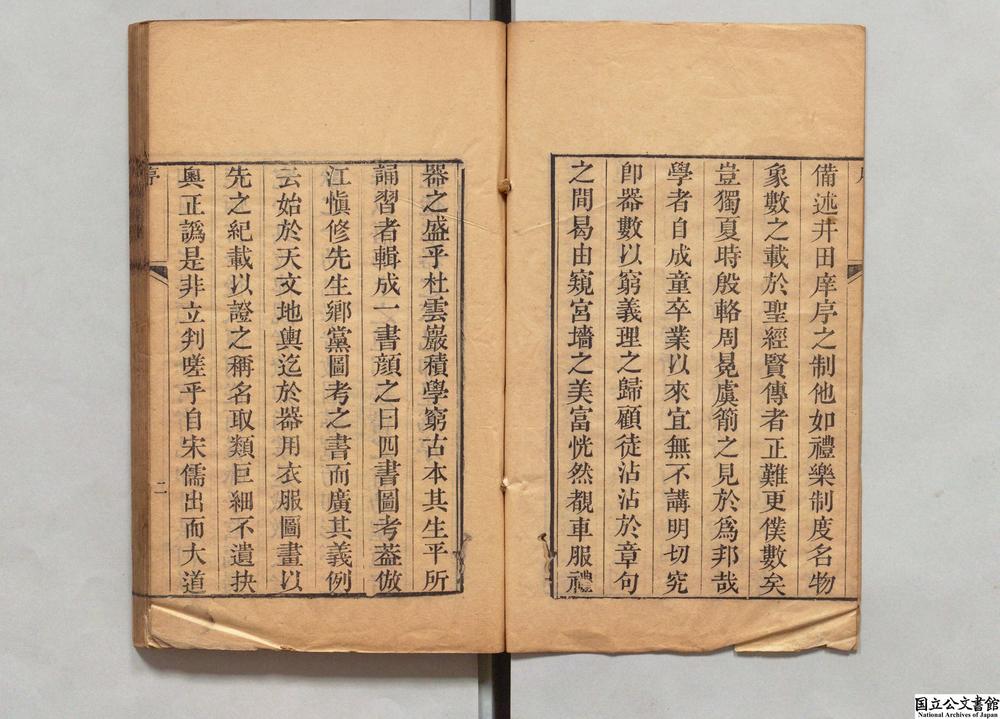 備述井田庠序之制他如禮樂制度名物
象數之載於聖經賢傳者正難更僕數矣
豈獨夏時殷輅周冕虞箾之見於爲邦哉
學者自成童卒業以來宜無不講明切究
卽器數以窮義理之歸顧徒沾沾於章句
之間曷由窺宮墻之美富恍然覩車服禮
器之盛乎杜雲巖積學窮古本其生平所
誦習者輯成一書顔之曰四書圖考葢倣
江愼修先生鄕黨圖考之書而廣其義例
云始於天文地輿迄於器用衣服圖畫以
先之紀載以證之稱名取類巨細不遺抉
奥正譌是非立判嗟乎自宋儒出而大道
序
二
国立公文書館
National Archives of Japan